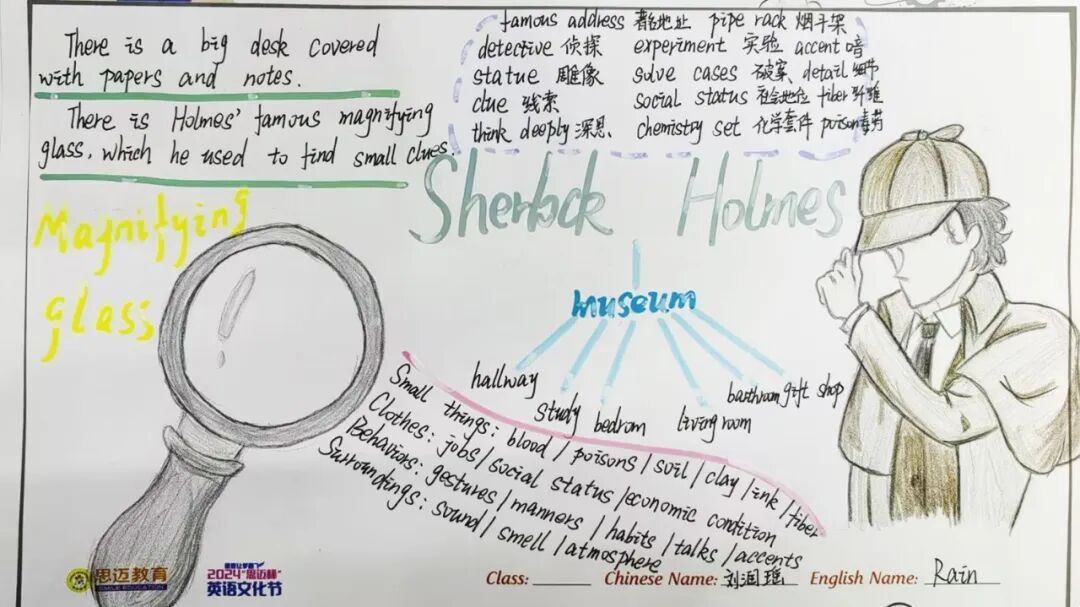 There is a big desk covered
with papers and notes.
There is Holmes' famous magnifying
glass, which he used to find small clues.
famous address 著名地址 pipe rack 烟斗架
detective 侦探 experiment 实验 accent 口音
statue 雕像 solve cases 破案、detail 细节
clue 线索 social status 社会地位 fiber 纤维
think deeply 深思、 chemistry set 化学套件 poison 毒药
Sherlock Holmes
Magnifying
glass
museum
hallway
study
bedroom
living room
bathroom
gift shop
Small things: blood / poisons / soil / clay / ink / fiber
Clothes: jobs / social status / economic condition
Behaviors: gestures / manners / habits / talks / accents
Surroundings: sound / smell / atmosphere
思迈教育
2024"思迈杯"
英语文化节
Class: Chinese Name: 刘润瑶 English Name: Rain